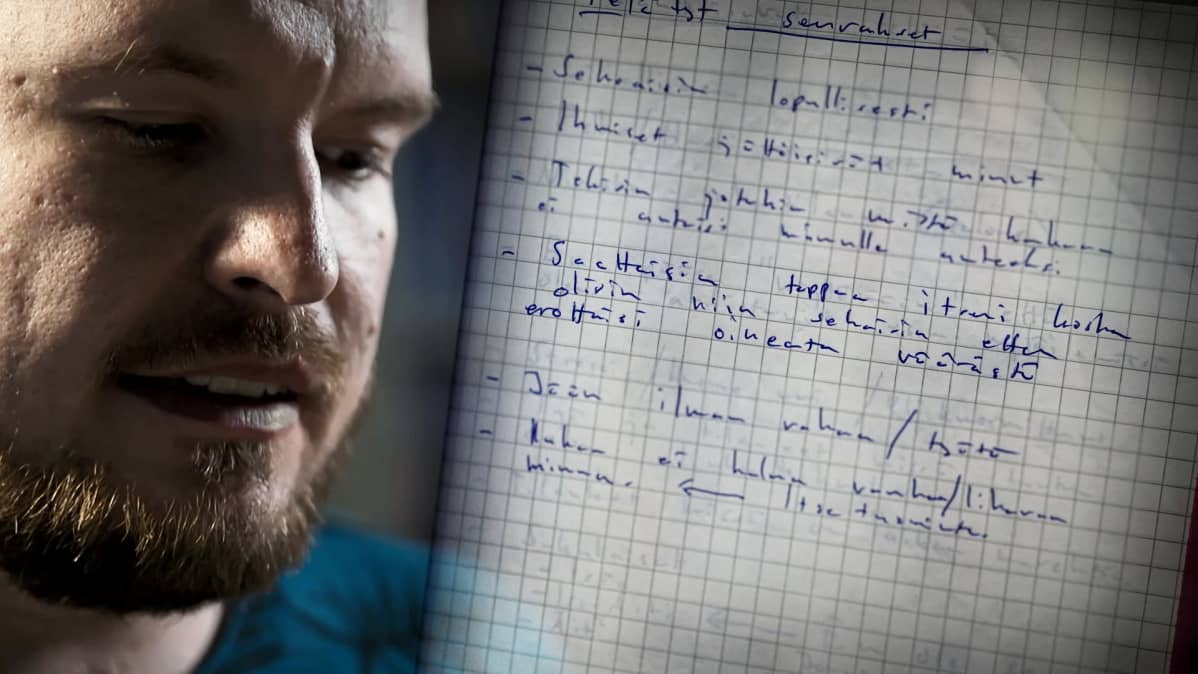 Pelätyt seuraukset
- Sekoaisin lopullisesti
- Ihmiset jättäisivät minut
- Tekisin jotakin mistä kukaan
ei antaisi minulle anteeksi.
- Saattaisin tappaa itseni koska
olisin niin sekaisin etten
erottaisi oikeata väärästä
- Jään ilman rahaa / työtä
- Kukaan ei halua vanhaa/lihavaa
minua. ← Itsetunnista.